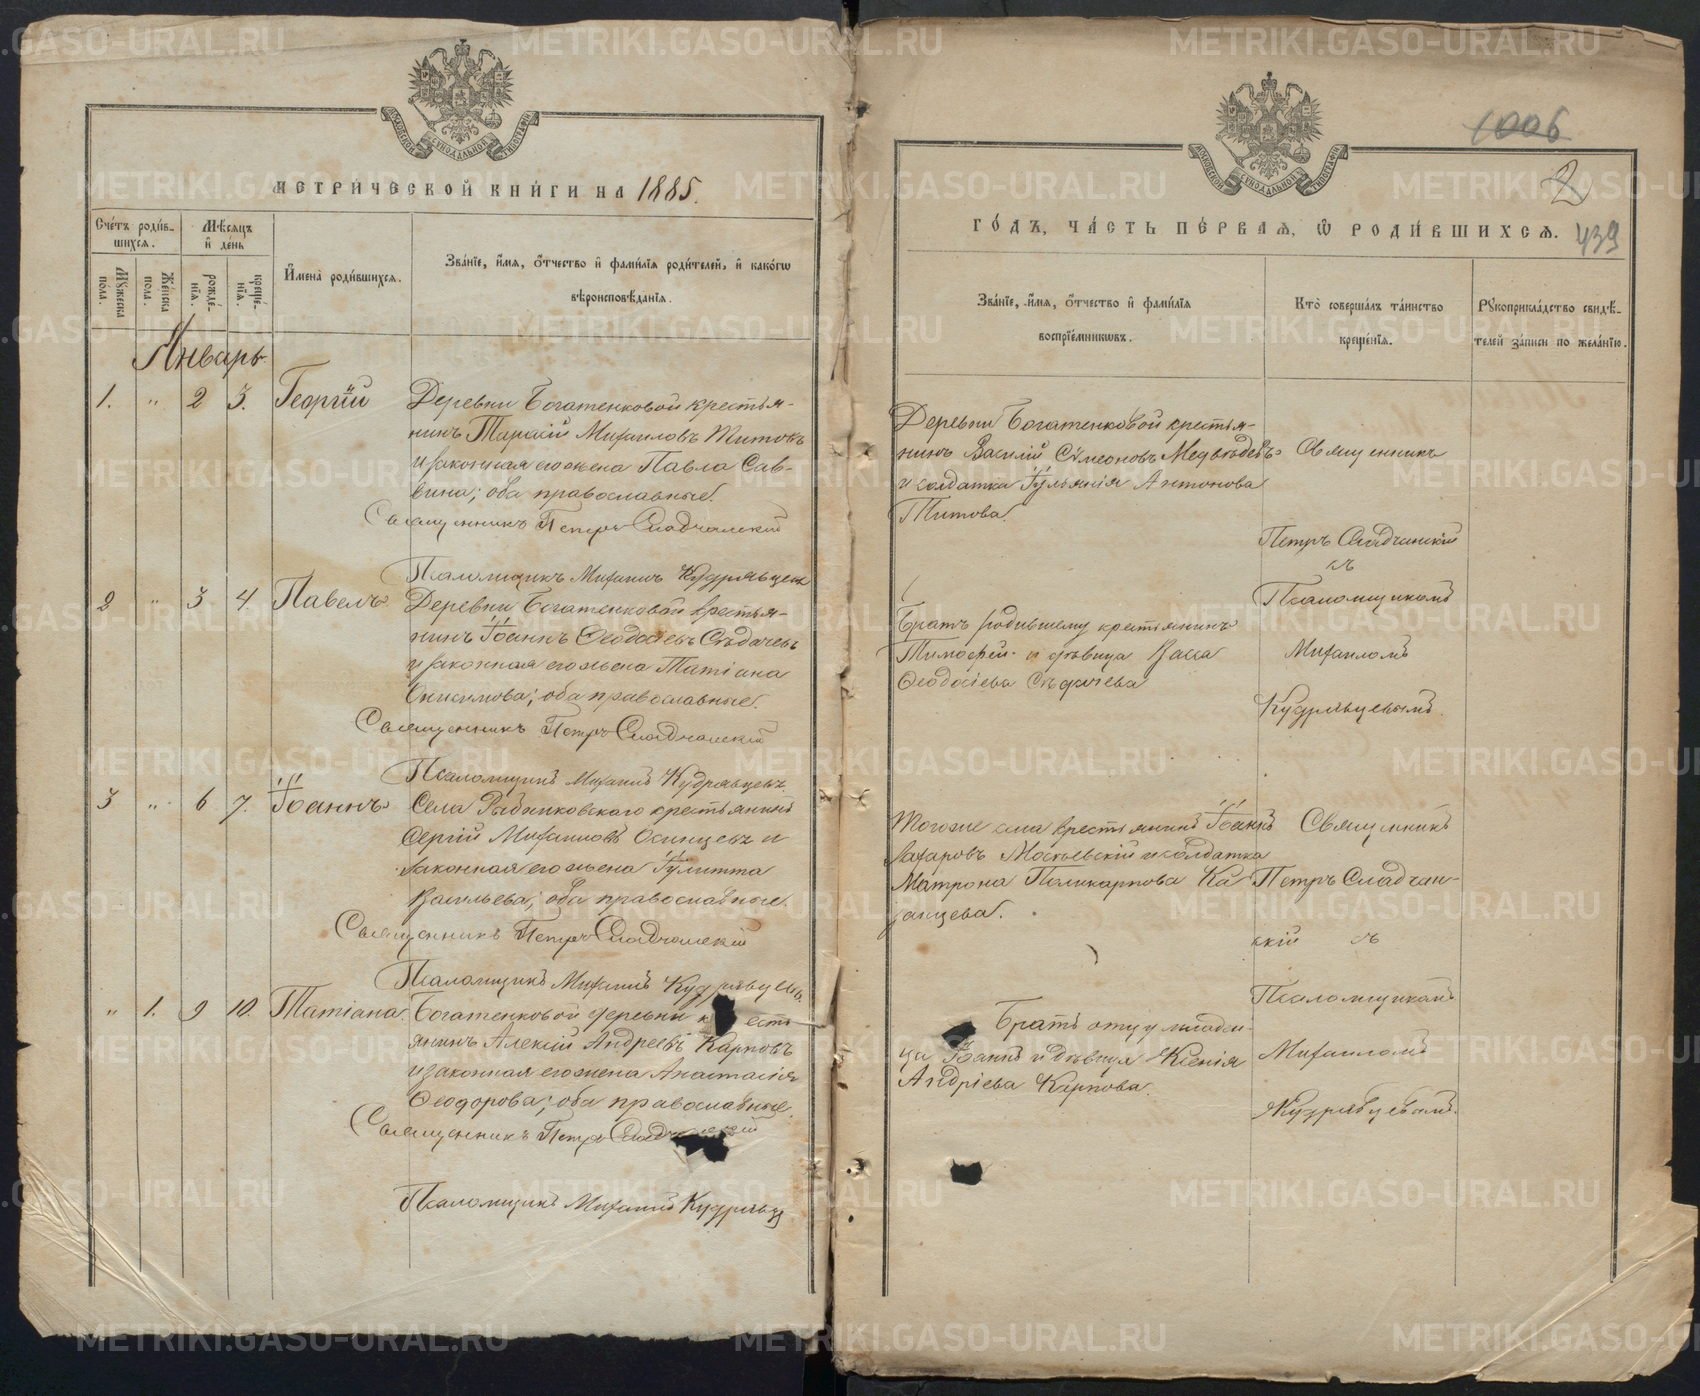 МОСКОВСКОЙ СѴНОДАЛЬНОЙ ТИПОГРАФІИ
МЕТРИ́ЧЕСКОЙ КНИ́ГИ НА 1885.
Сче́тъ роди́вшихсѧ.
Мѣ́сѧцъ и҆ де́нь
Мꙋ́жеска по́ла.
Же́нска пола.
рожде́нїѧ.
креще́нїѧ.
И҆мена̀ роди́вшихсѧ.
Зва́нїе, и҆́мѧ, ѻ҆́тчество и҆ фами́лїѧ роди́телей, и҆ како́гѡ
вѣроисповѣ́данїѧ.
Январь
1. " 2 3. Георгій
Деревни Богатенковой крестья-
нинъ Тарасій Михаиловъ Титовъ
и законная его жена Павла Сав-
вина; оба православные.
Священникъ Петръ Сладчанскій
Псаломщикъ Михаилъ Кудрявцевъ
2 " 3 4. Павелъ
Деревни Богатенковой крестья-
нинъ Іоаннъ Ѳеодосіевъ Сѣдачевъ
и законная его жена Татіана
Онисимова; оба православные.
Священникъ Петръ Сладчанскій
Псаломщикъ Михаилъ Кудрявцевъ
3 " 6 7. Іоаннъ
Села Рыбниковскаго крестьянинъ
Сергій Михаиловъ Осинцевъ и
законная его жена Іулитта
Васильева; оба православные.
Священникъ Петръ Сладчанскій
Псаломщикъ Михаилъ Кудрявцевъ
" 1. 9 10. Татіана.
Богатенковой деревни к естъ
янинъ Алексій Андреевъ Карповъ
и законная его жена Анастасія
Ѳеодорова; оба православные.
Священникъ Петръ Сладчанскій
Псаломщикъ Михаилъ Кудрявц
МОСКОВСКОЙ СѴНОДАЛЬНОЙ ТИПОГРАФІИ
1006
2
439
ГО́ДЪ, ЧА́СТЬ ПЕ́РВАѦ, Ѽ РОДИ́ВШИХСѦ.
Зва́нїе, и҆́мѧ, ѻ҆́тчество и҆ фами́лїѧ
воспрїе́мникѡвъ.
Кто̀ соверша́лъ та́инство
креще́нїѧ.
Рꙋкоприкла́дство свидѣ́-
телей за́писи по жела́нїю.
Деревни Богатенковой крестья-
нинъ Василій Сѵмеоновъ Медвѣдевъ
и солдатка Іульянія Антонова
Титова.
Священникъ
Петръ Сладчанскій
съ
Псаломщикомъ
Михаиломъ
Кудрявцевымъ.
Братъ родившему крестьянинъ
Тимофей и дѣвица Васса
Ѳеодосіева Сѣдачева
Тогоже села крестьянинъ Іоаннъ
Захаровъ Москвевскій и солдатка
Матрона Поликарпова Ка
занцева.
Священникъ
Петръ Сладчан-
скій съ
Псаломщикомъ
Михаиломъ
Кудрявцевымъ.
Братъ отцу младен-
ца Іоаннъ и дѣвица Ксенія
Андріева Карпова.
METRIKI.GASO-URAL.RU